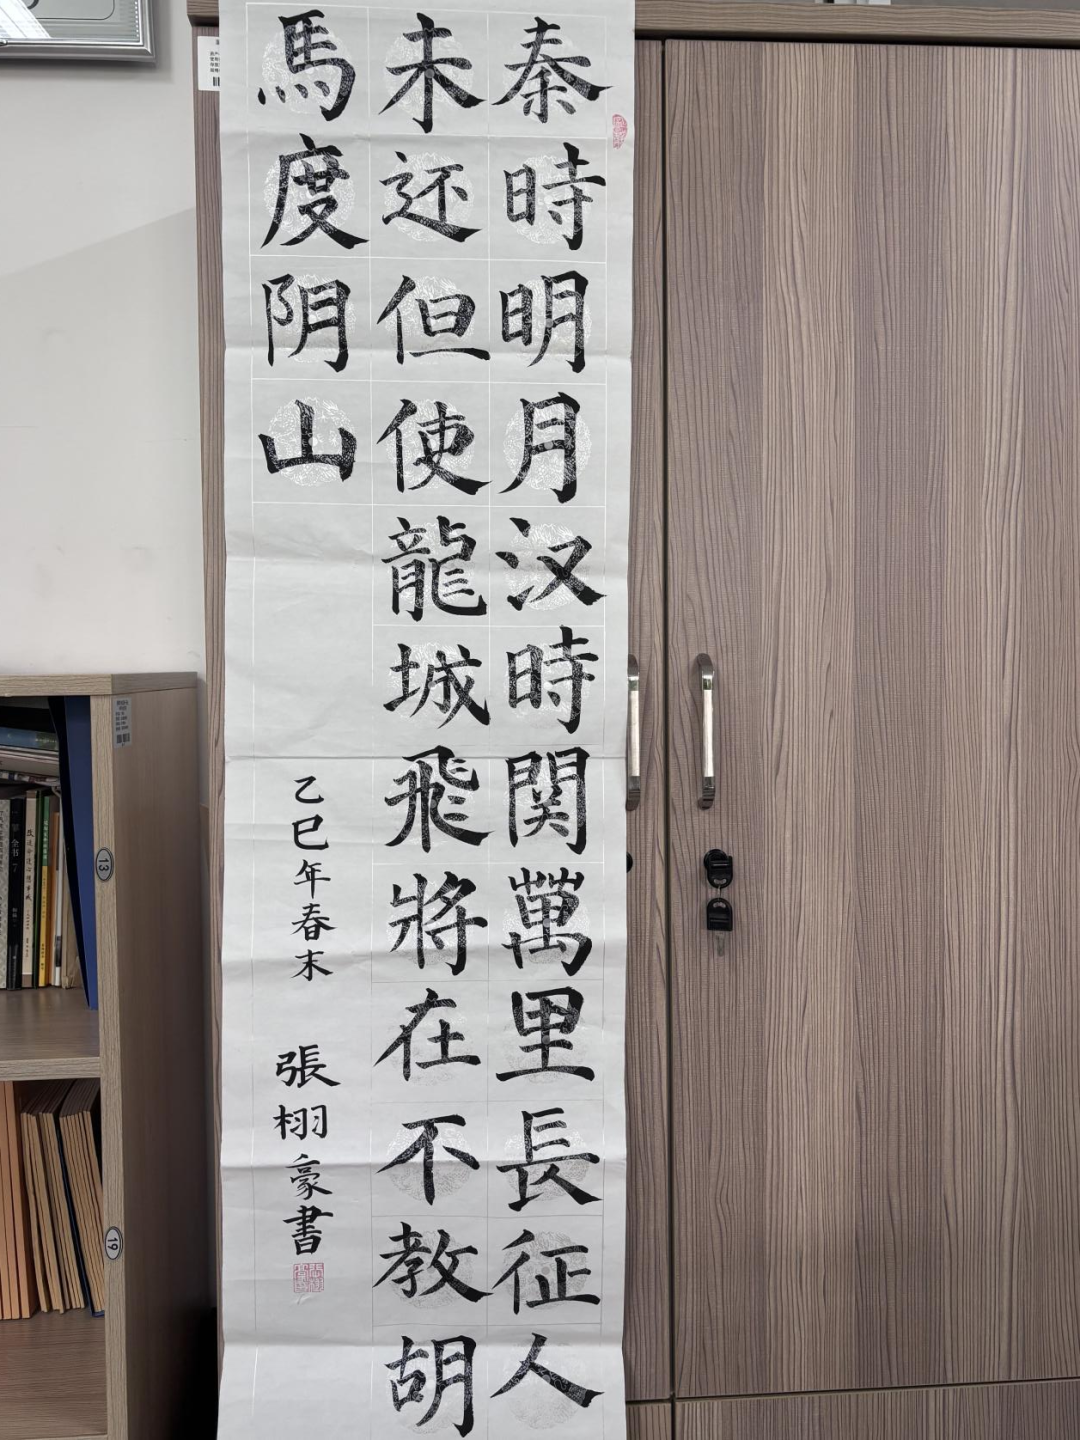 秦時明月汉時関萬里長征人
未还但使龍城飛將在不教胡
馬度阴山
乙巳年春末
張栩豪書
13
19